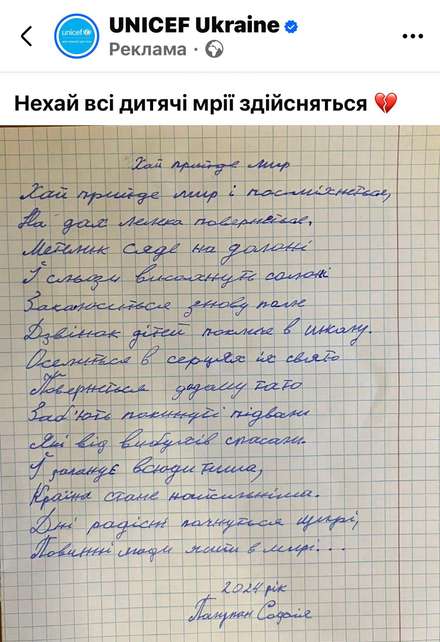 UNICEF Ukraine
unicef
Реклама ·
Нехай всі дитячі мрії здійсняться 💔
Хай прийде мир
Хай прийде мир і посміхнеться,
На дах лелека повернеться.
Метелик сяде на долоні
І сльози висохнуть солоні
Заколоситься знову поле
Дзвінок дітей покличе в школу.
Оселиться в серцях їх свято
Повернеться додому тато
Заб'ють покинуті підвали
Які від вибухів спасали.
І запанує всюди тиша,
Країна стане найсильніша.
Дні радісні почнуться щирі,
Повинні люди жити в мирі...
2024 рік
Софія